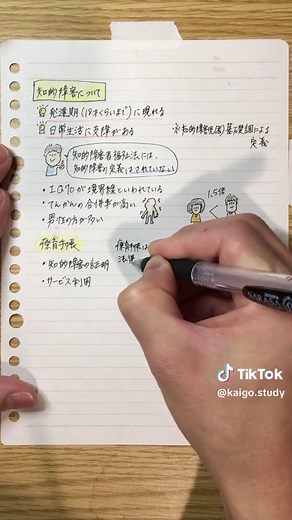 知的障害について
発達期(18才くらいまで)に現れる
日常生活に支障がある
※知的障害児(者)基礎調査による
定義
知的障害者福祉法には、
知的障害の定義はされていない
・IQ70が境界線といわれている
・てんかんの合併率が高い
・男性の方が多い
1.5倍
療育手帳
・知的障害の証明
・サービス利用
療育手帳は
法律
SARASA
TikTok
@kaigo.study